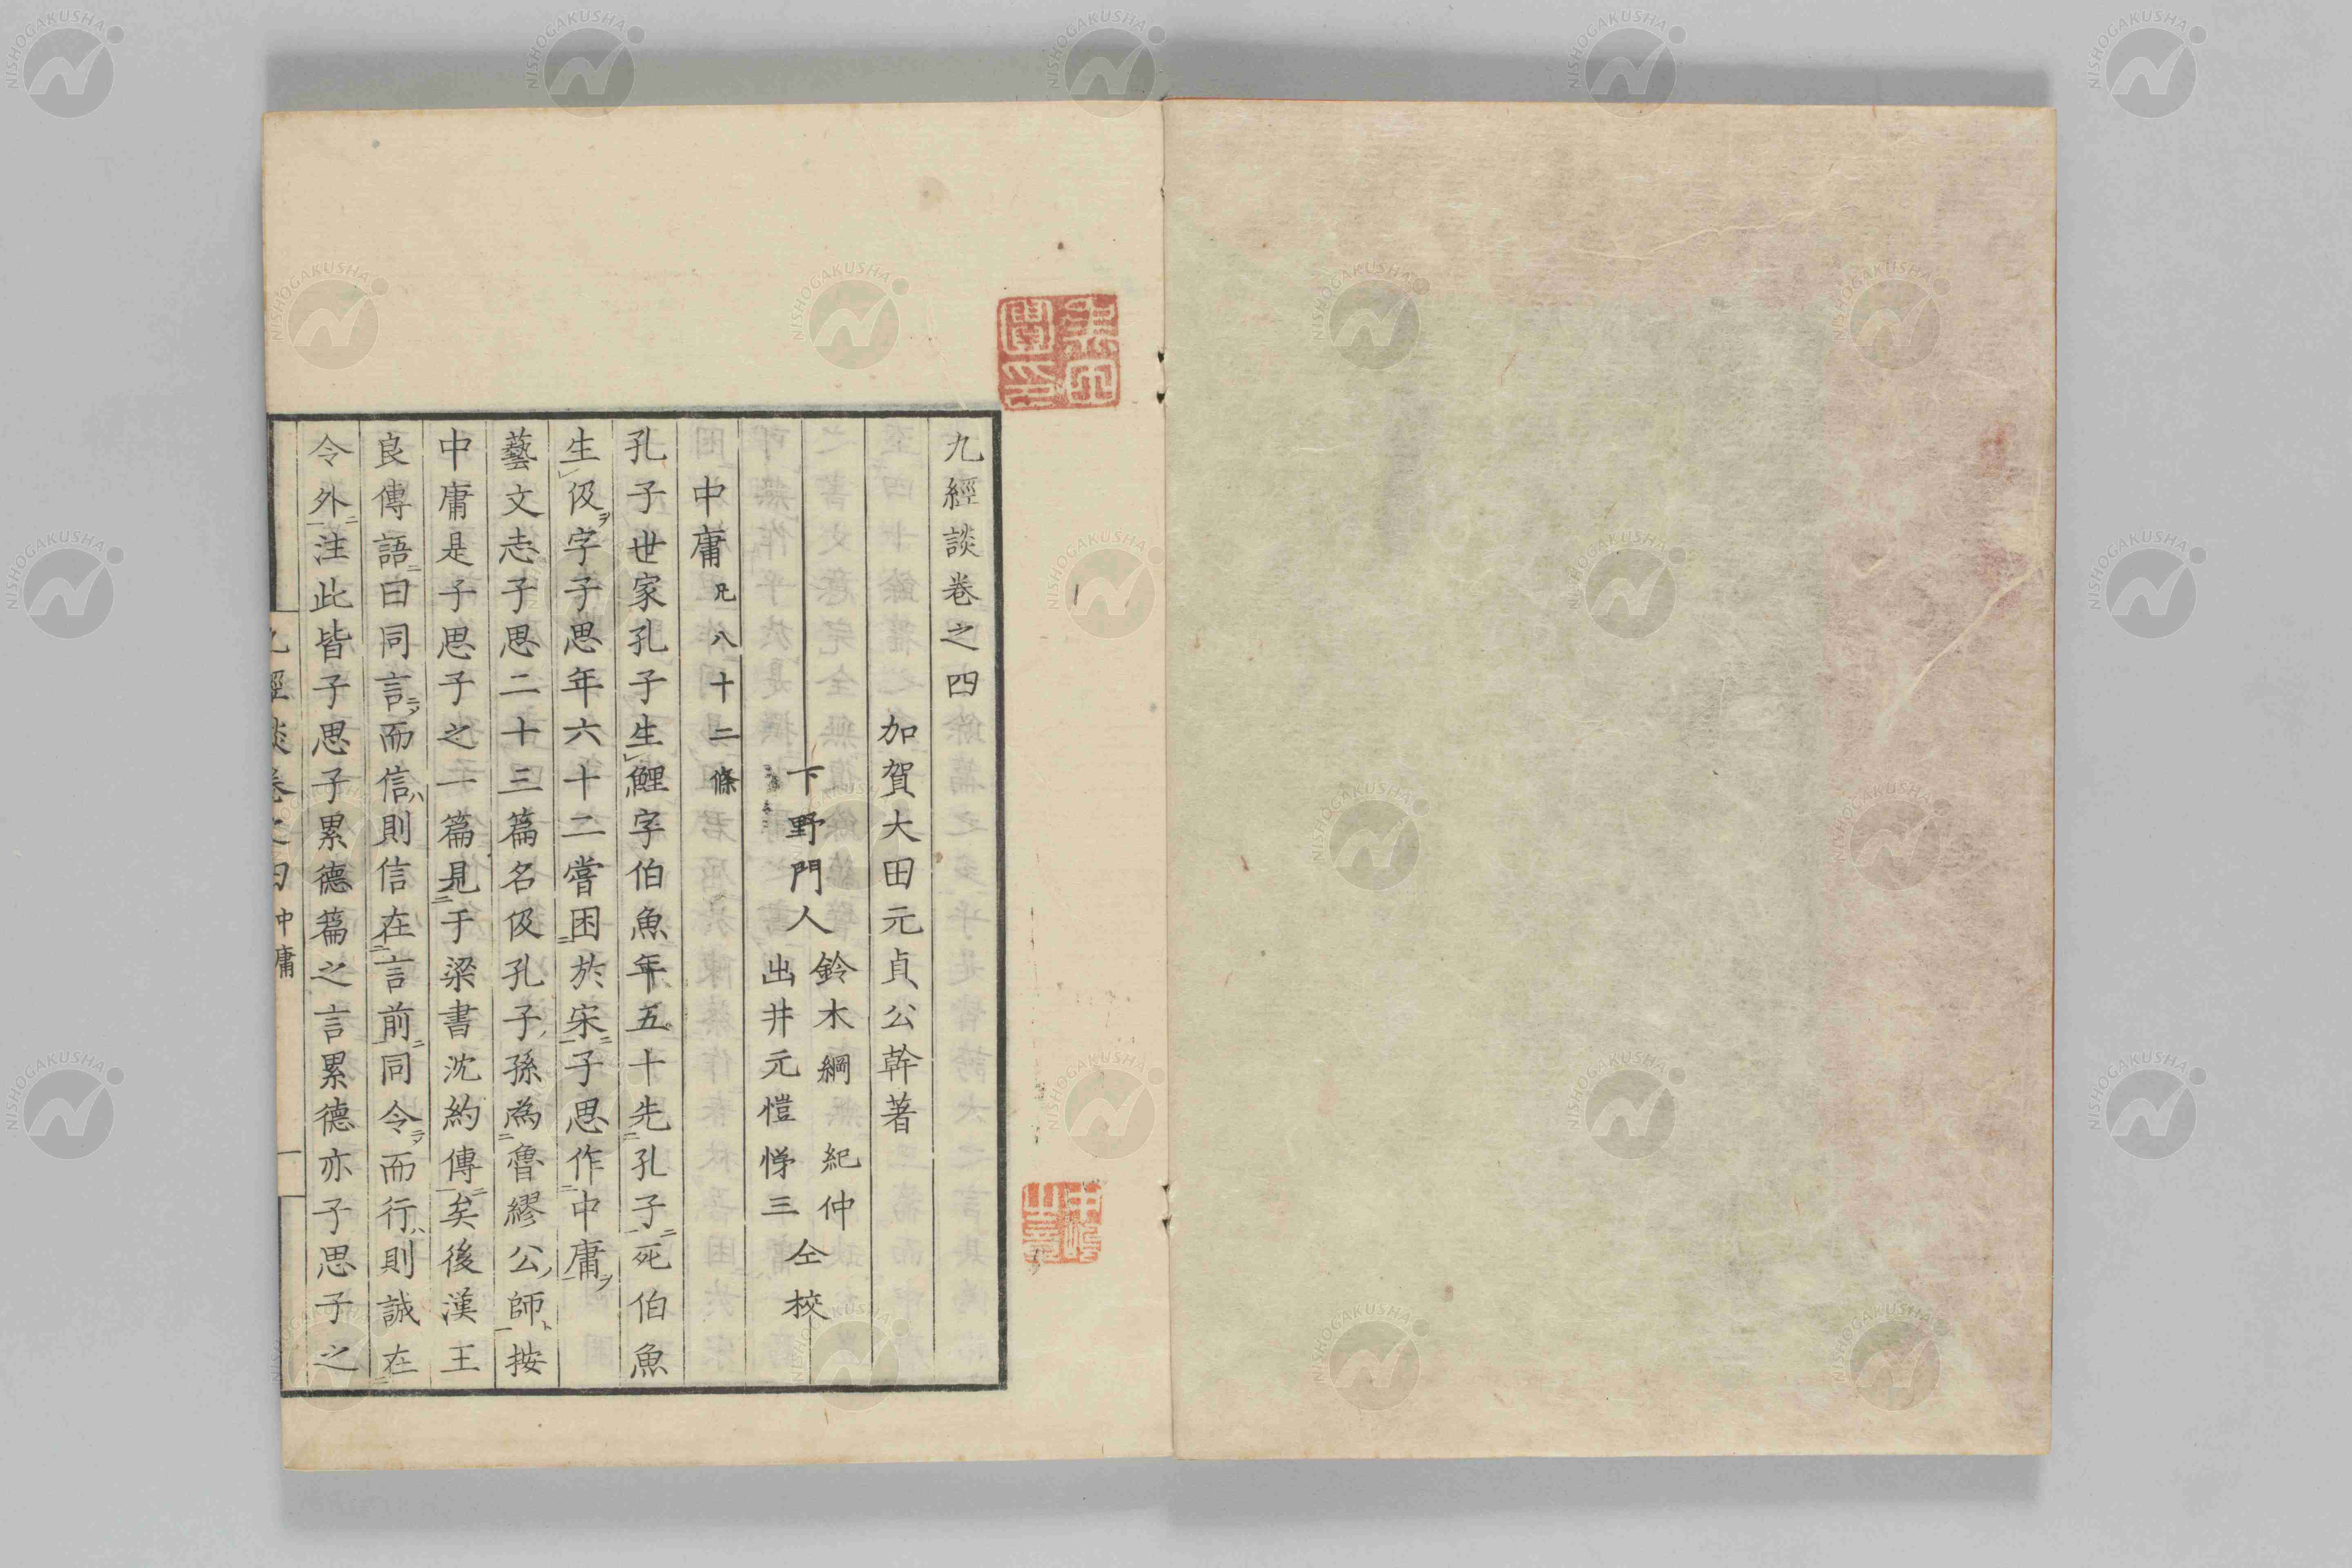 九經談卷之四
加賀大田元貞公幹著
下野門人
鈴木綱紀仲
出井元愷悌三
仝校
中庸凡八十二條
孔子世家孔子生鯉字伯魚年五十先孔子死伯魚
生伋字子思年六十二嘗困於宋子思作中庸
藝文志子思二十三篇名伋孔子孫為魯繆公師按
中庸是子思子之一篇見于梁書沈約傳矣後漢王
良傳語曰同言而信則信在言前同令而行則誠在
令外注此皆子思子累德篇之言累德亦子思子之
九經談卷之四
中庸
一
NISHOGAKUSHA